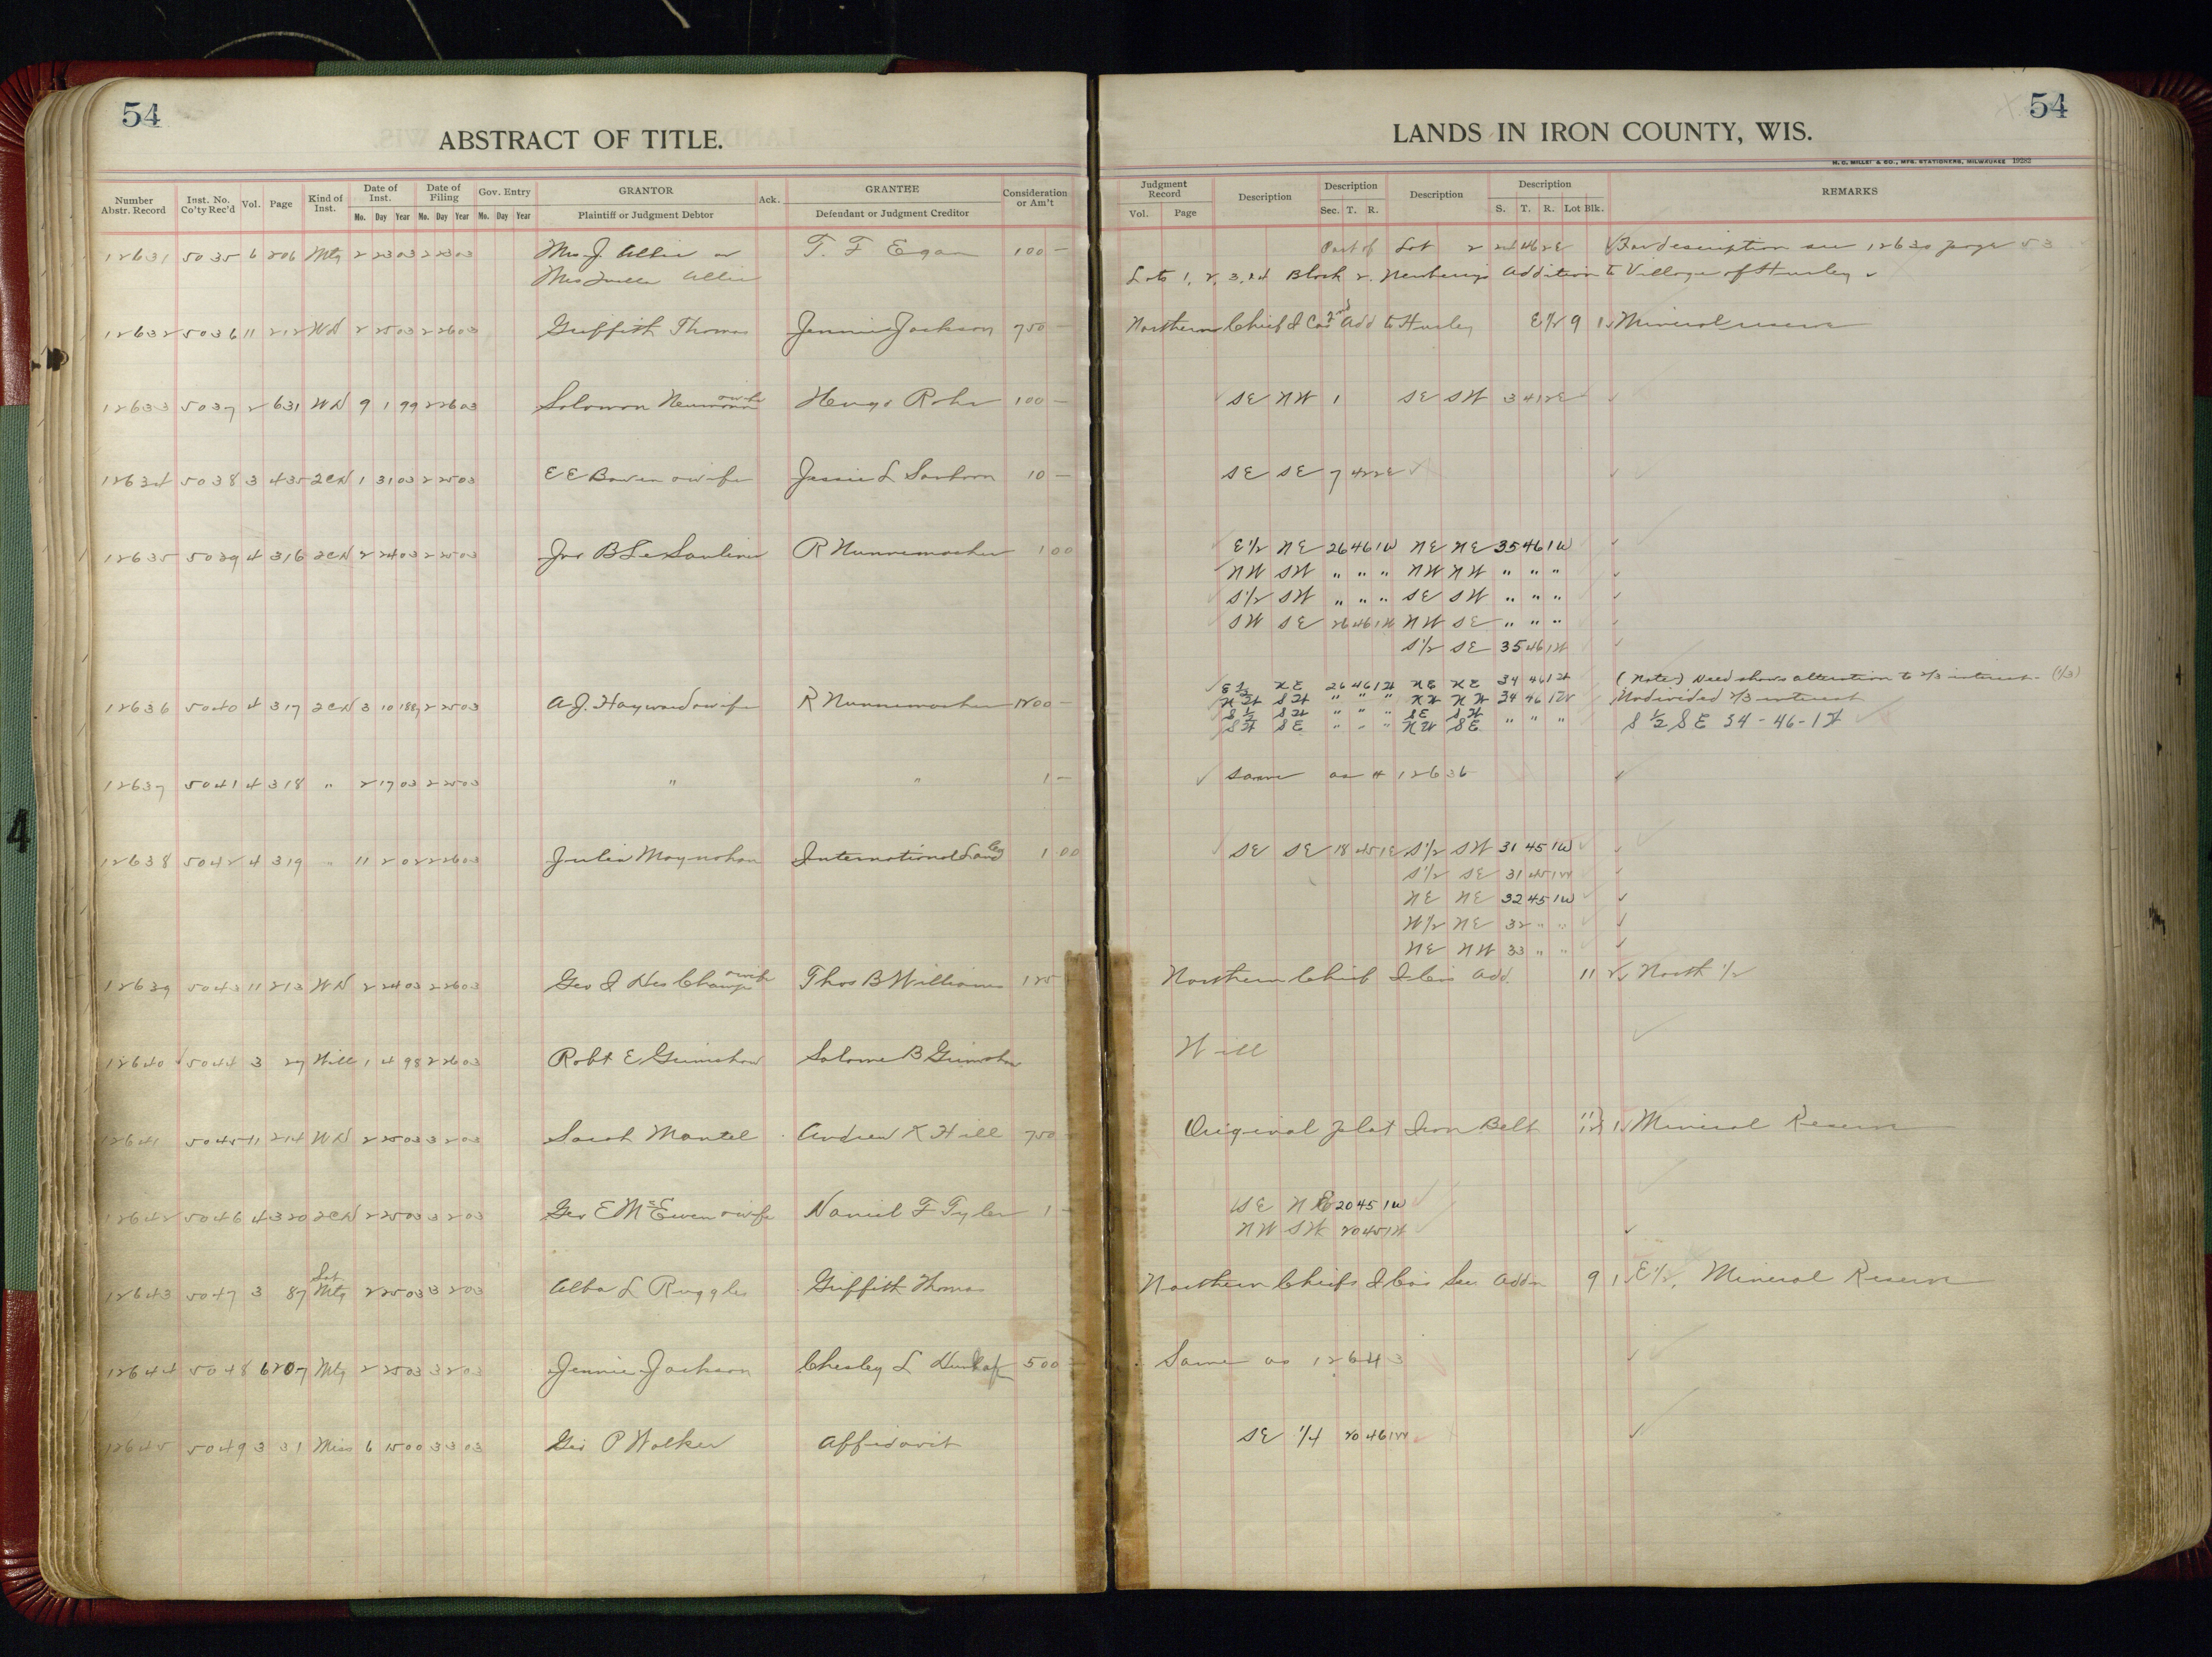 54
ABSTRACT OF TITLE.
Number Abstr. Record Inst. No. Co'ty Rec'd Vol. Page Kind of Inst. Date of Inst. Date of Filing Gov. Entry GRANTOR Ack. GRANTEE Consideration or Am't
Mo. Day Year Mo. Day Year Mo. Day Year Plaintiff or Judgment Debtor Defendant or Judgment Creditor
12631 5035 6 206 Mtg 2 23 03 2 23 03 Mrs J. Allie or T. F Egan 100 —
Mrs Allie
12632 5036 11 212 WD 2 25 03 2 26 03 Griffith Thomas Jennie Jackson 750 —
12633 5037 2 631 WD 9 1 99 2 26 03 Solomon Neumann & wife Hugo Rohr 100 —
12634 5038 3 435 2CD 1 31 03 2 25 03 E E Bowen & wife Jessie L Sanborn 10 —
12635 5039 4 316 2CD 2 24 03 2 25 03 Jno B Le Saulinier R Nunnemacher 1 00
12636 5040 4 317 2CD 3 10 1887 2 25 03 A. J. Hayward & wife R Nunnemacher 1200 —
12637 5041 4 318 " 2 17 03 2 25 03 " " 1 —
12638 5042 4 319 " 11 2 02 2 26 03 Julia Moynahan International Land Co 1 00
12639 5043 11 213 WD 2 24 03 2 26 03 Geo I Des Champs & wife Thos B Williams 125
12640 5044 3 29 Will 1 4 98 2 26 03 Robt E Grimshaw Salome B Grimshaw
12641 5045 11 214 WD 2 25 03 3 2 03 Sarah Mantel Andrew K Hill 750
12642 5046 4 320 2CD 2 25 03 3 2 03 Geo E McEwen & wife Daniel F Tyler 1
12643 5047 3 87 Sat Mtg 2 25 03 3 2 03 Alba L Ruggles Griffith Thomas
12644 5048 6 207 Mtg 2 25 03 3 2 03 Jennie Jackson Chesley L 500
12645 5049 3 31 Miss 6 15 00 3 3 03 Geo P Walker Affidavit
54
LANDS IN IRON COUNTY, WIS.
H. C. MILLER & CO., MFG. STATIONERS, MILWAUKEE 19282
Judgment Record Description Description Description Description REMARKS
Vol. Page Sec. T. R. S. T. R. Lot Blk.
Part of Lot 2 24 46 2E For description see 12630 page 53
Lots 1, 2, 3, 24 Block 2. Newberrys Addition to Village of Hurley
Northern Chief I Cos 2nd Add to Hurley E1/2 9 1 Mineral reserve
SE NW 1 SE SW 3 41 2E
SE SE 7 42 2E
E1/2 NE 26 46 1W NE NE 35 46 1W
NW SW " " " NW NW " " "
S1/2 SW " " " SE SW " " "
SW SE 26 46 1W NW SE " " "
S1/2 SE 35 46 1W
E 1/2 NE 26 46 1W NE NE 34 46 1W (Note) Deed shows alteration to 2/3 interest. (1/3)
NW SW " " " NW NW 34 46 1W Undivided 2/3 interest
S 1/2 SW " " " SE SW
SW SE " " " NW SE " " " S 1/2 SE 34 - 46 - 1W
Same as # 12636
SE SE 18 45 1E S1/2 SW 31 45 1W
S1/2 SE 31 45 1W
NE NE 32 45 1W
W1/2 NE 32 " "
NE NW 33 " "
Northern Chief I Cos Add. 11 2 North 1/2
Will
Original plat Iron Belt 11 12 1 Mineral Reserve
SE NE 20 45 1W
NW SW 20 45 1W
Northern Chiefs I Cos Sec Addn 9 1 E1/2, Mineral Reserve
Same as 12643
SE 1/4 20 46 1W